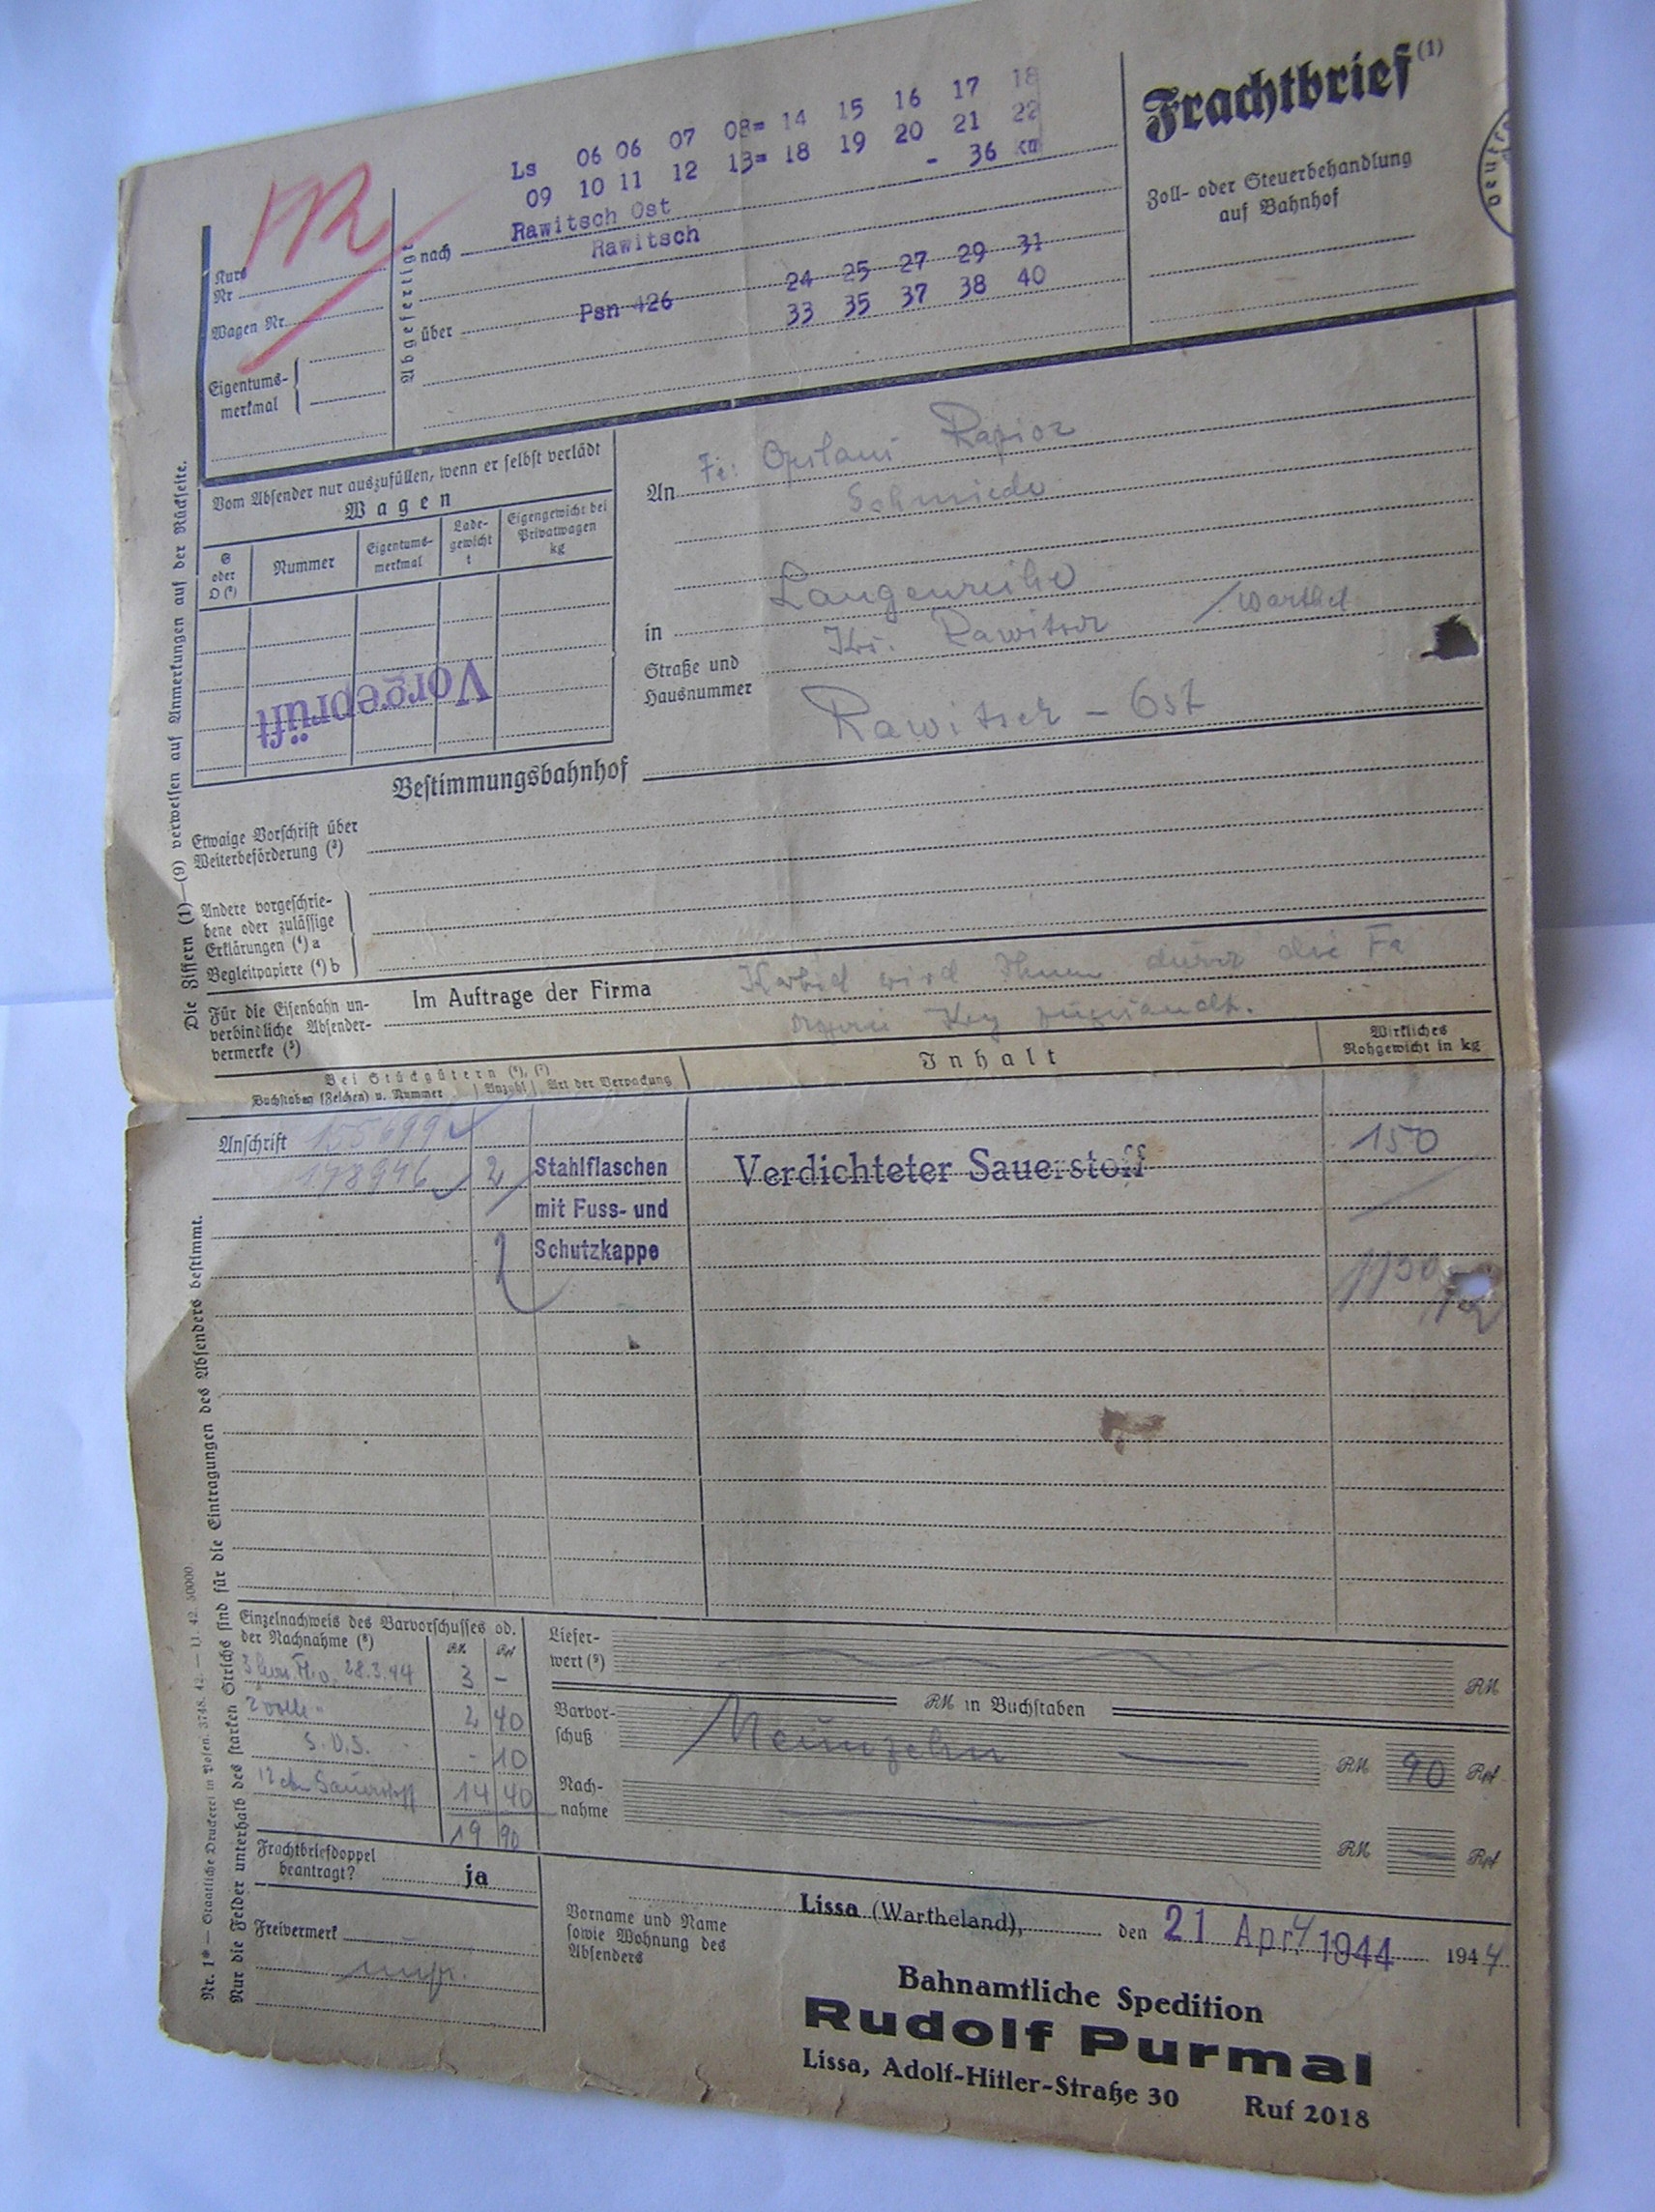 Frachtbrief (1)
Zoll- oder Steuerbehandlung
auf Bahnhof
Ls 06 06 07 08= 14 15 16 17 18
09 10 11 12 13= 18 19 20 21 22
- 36
Kurs
Nr
Wagen Nr
Eigentums-
merkmal
Abgefertigt
nach Rawitsch Ost
Rawitsch
24 25 27 29 31
über Psn 426
33 35 37 38 40
Vom Absender nur auszufüllen, wenn er selbst verlädt
Wagen
G oder O (²)
Nummer
Eigentums-
merkmal
Lade-
gewicht
t
Eigengewicht bei
Privatwagen
kg
Vorgeprüft
An Fa:
Schmiede
in Langenreihe
Straße und
Hausnummer
Krs. Rawitsch / Warthel
Bestimmungsbahnhof Rawitsch - Ost
Etwaige Vorschrift über
Weiterbeförderung (³)
Andere vorgeschrie-
bene oder zulässige
Erklärungen (⁴) a
Begleitpapiere (⁴) b
Für die Eisenbahn un-
verbindliche Absender-
vermerke (⁵)
Im Auftrage der Firma
wird Ihnen durch die Fa
Die Ziffern (1)—(9) verweisen auf Anmerkungen auf der Rückseite.
Bei Stückgütern (⁶), (⁷)
Buchstaben (Zeichen) u. Nummer
Anzahl
Art der Verpackung
Inhalt
Wirkliches
Rohgewicht in kg
Anschrift 155699
178946 2 Stahlflaschen Verdichteter Sauerstoff 150
mit Fuss- und
Schutzkappe
Nr. 1* — Staatliche Druckerei in Posen. 3748. 42. — 11. 42. 50000
Nur die Felder unterhalb des starken Strichs sind für die Eintragungen des Absenders bestimmt.
Einzelnachweis des Barvorschusses od.
der Nachnahme (⁸)
RM Rpf
28.3.44 3 -
2 volle " 2 40
S.D.S. - 10
12 cbm Sauerstoff 14 40
19 90
Liefer-
wert (⁹)
RM
RM in Buchstaben
Barvor-
schuß
Neunzehn
RM 90 Rpf
Nach-
nahme
RM Rpf
Frachtbriefdoppel
beantragt? ja
Freivermerk
Vorname und Name
sowie Wohnung des
Absenders
Lissa (Wartheland), den 21 Apr. 1944 1944
Bahnamtliche Spedition
Rudolf Purmal
Lissa, Adolf-Hitler-Straße 30 Ruf 2018